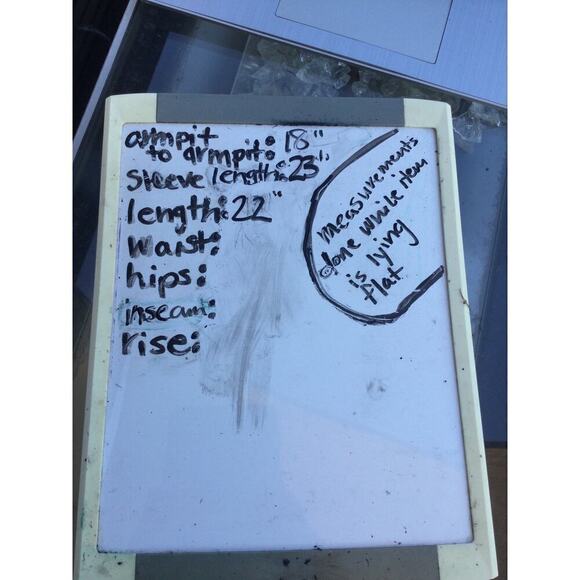 armpit
to armpit: 18"
sleeve length: 23"
length: 22"
waist:
hips:
inseam:
rise:
measurements
done while item
is lying
flat